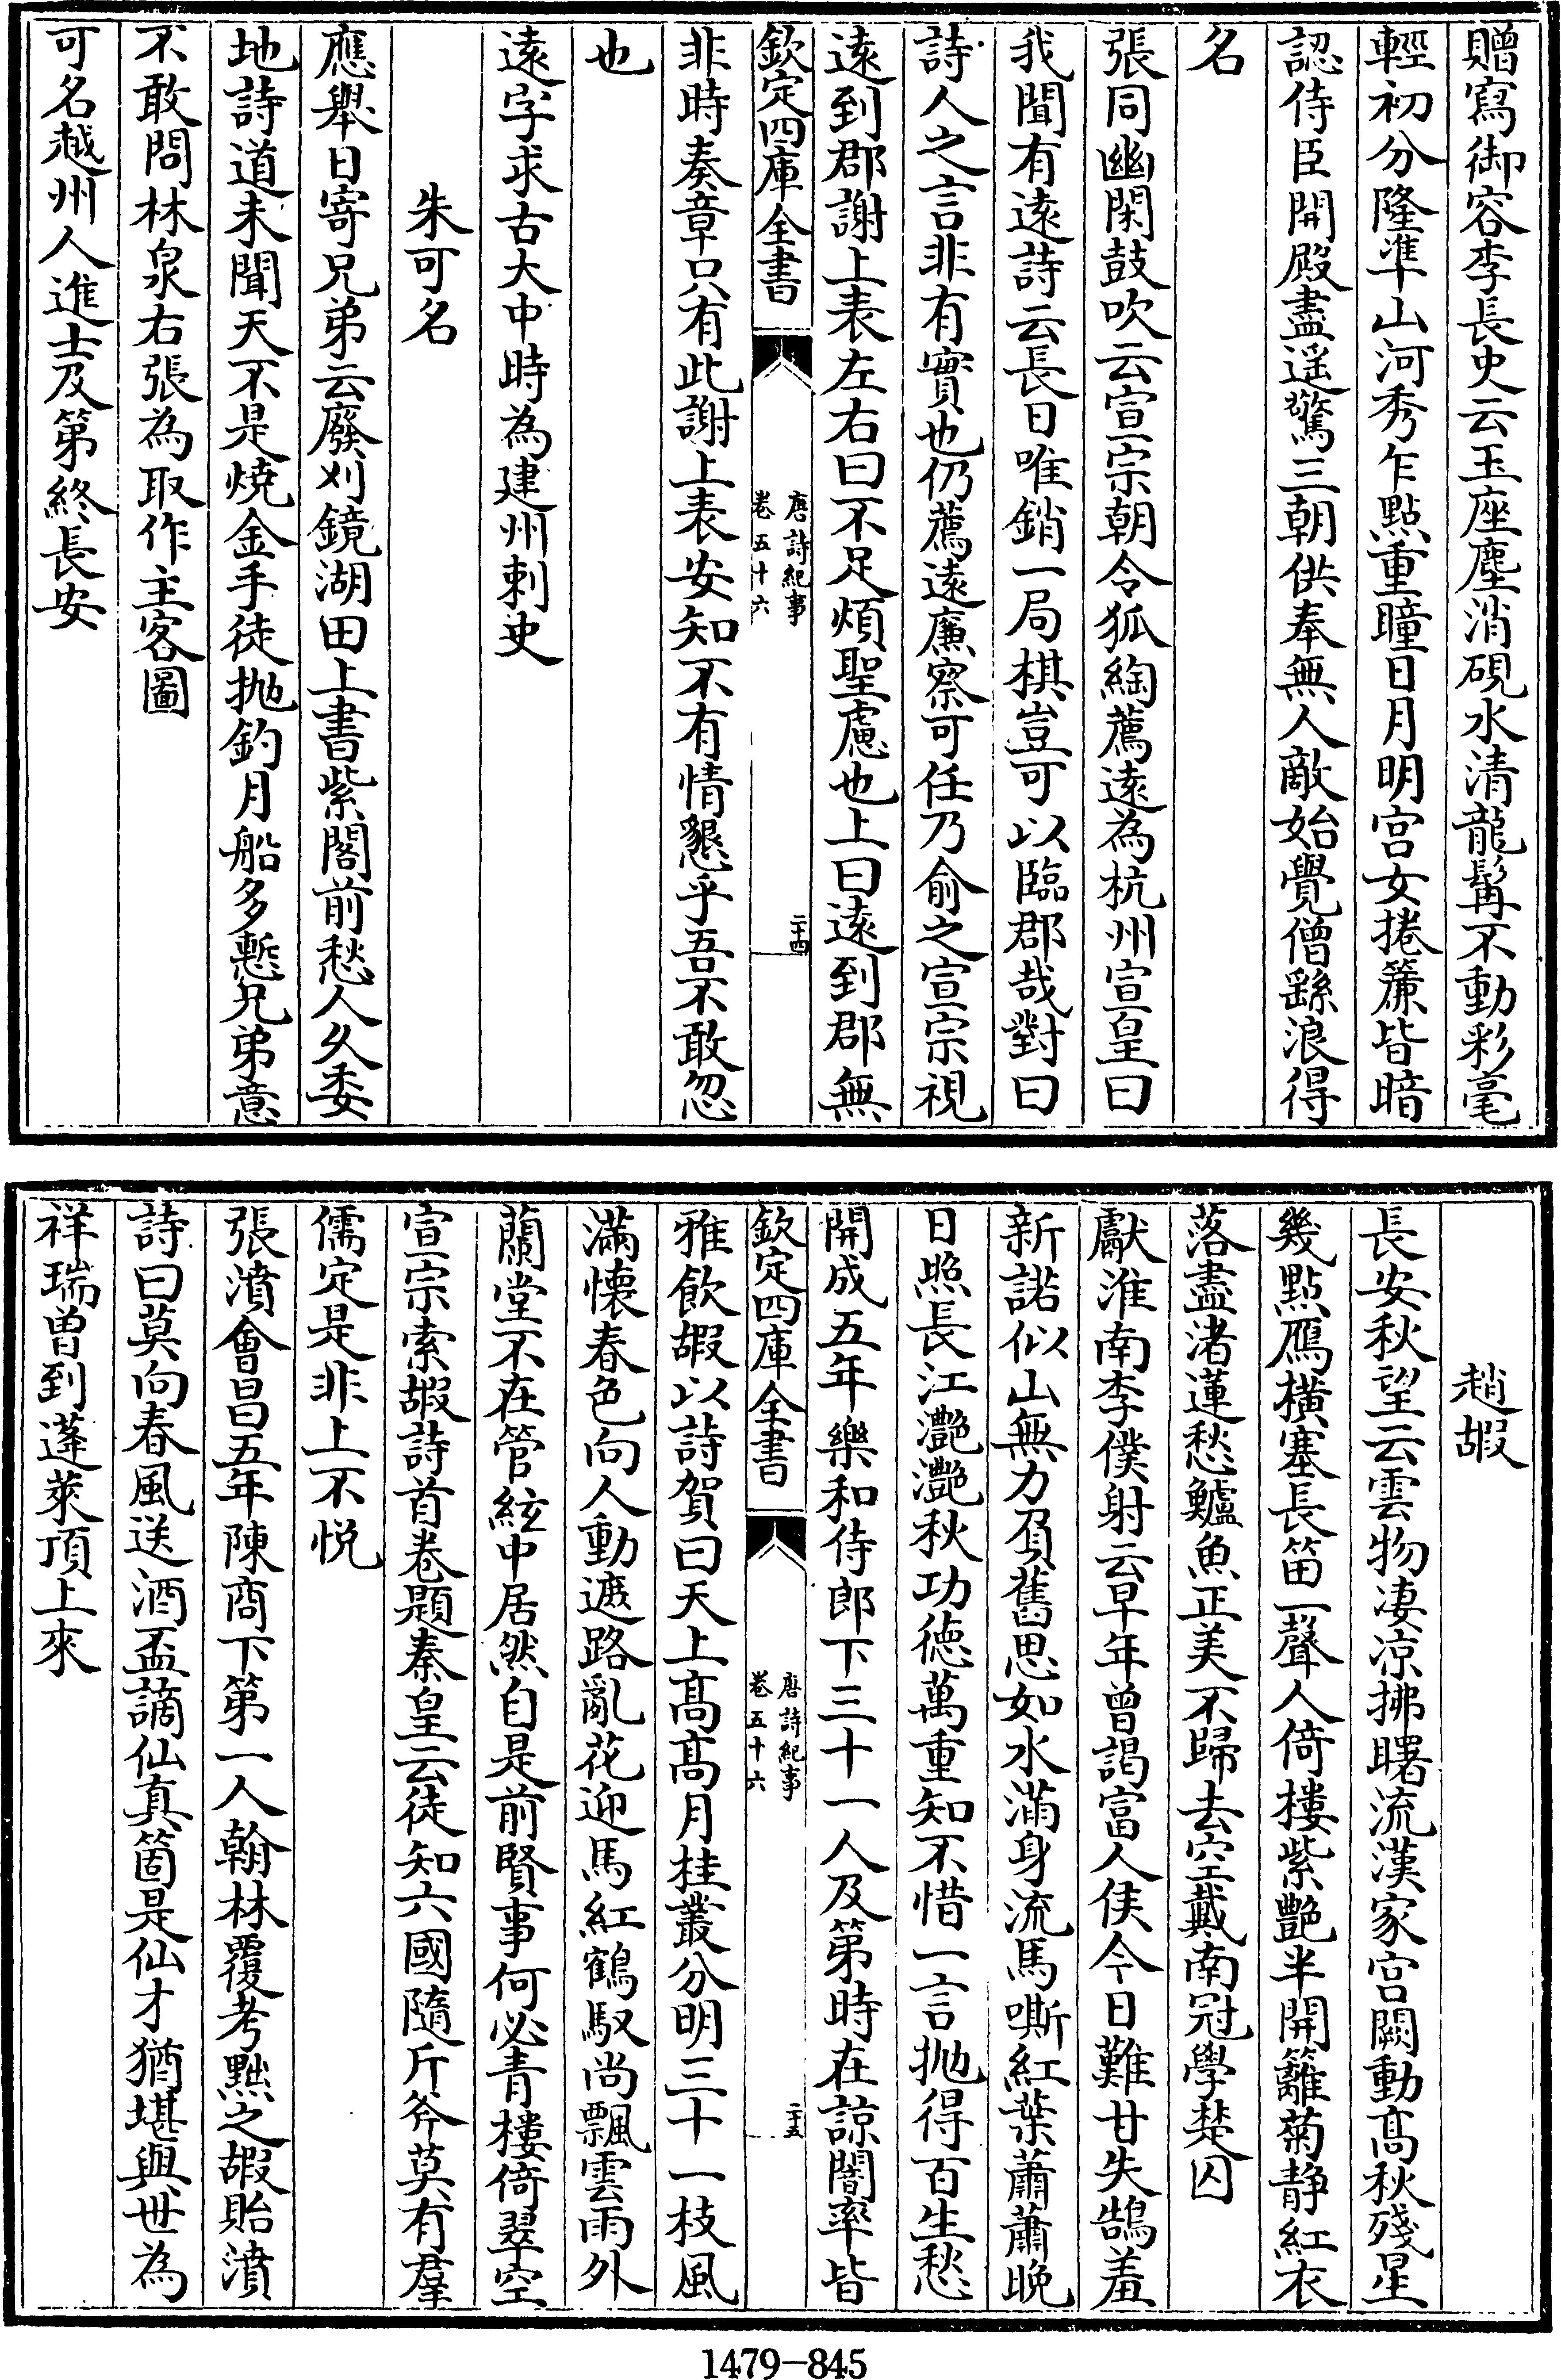 贈寫御容李長史云玉座塵消硯水清龍髯不動彩毫
輕初分隆準山河秀乍點重瞳日月明宮女捲簾皆暗
認侍臣開殿盡遥驚三朝供奉無人敵始覺僧繇浪得
名
張同幽閑鼓吹云宣宗朝令狐綯薦遠為杭州宣皇曰
我聞有遠詩云長日唯銷一局棋豈可以臨郡哉對曰
詩人之言非有實也仍薦遠廉察可任乃俞之宣宗視
遠到郡謝上表左右曰不足煩聖慮也上曰遠到郡無
欽定四庫全書
唐詩紀事
卷五十六
二十四
非時奏章只有此謝上表安知不有情懇乎吾不敢忽
也
遠字求古大中時為建州刺史
朱可名
應舉日寄兄弟云廢刈鏡湖田上書紫閣前愁人久委
地詩道未聞天不是燒金手徒抛釣月船多慙兄弟意
不敢問林泉右張為取作主客圖
可名越州人進士及第終長安
趙嘏
長安秋望云雲物凄凉拂曙流漢家宫闕動髙秋殘星
幾點鴈横塞長笛一聲人倚樓紫艷半開籬菊静紅衣
落盡渚蓮愁鱸魚正美不歸去空戴南冠學楚囚
獻淮南李僕射云早年曾謁富人侯今日難甘失鵠羞
新諾似山無力負舊思如水滿身流馬嘶紅葉蕭蕭晚
日照長江灔灔秋功徳萬重知不惜一言抛得百生愁
開成五年樂和侍郎下三十一人及第時在諒闇率皆
欽定四庫全書
唐詩紀事
卷五十六
二十五
雅飲嘏以詩賀曰天上髙髙月桂叢分明三十一枝風
滿懐春色向人動遮路亂花迎馬紅鶴馭尚飄雲雨外
蘭堂不在管絃中居然自是前賢事何必青樓倚翠空
宣宗索嘏詩首卷題秦皇云徒知六國隨斤斧莫有羣
儒定是非上不悦
張濆會昌五年陳商下第一人翰林覆考黜之嘏貽濆
詩曰莫向春風送酒盃謫仙真箇是仙才猶堪與世為
祥瑞曾到蓬萊頂上來
1479-845